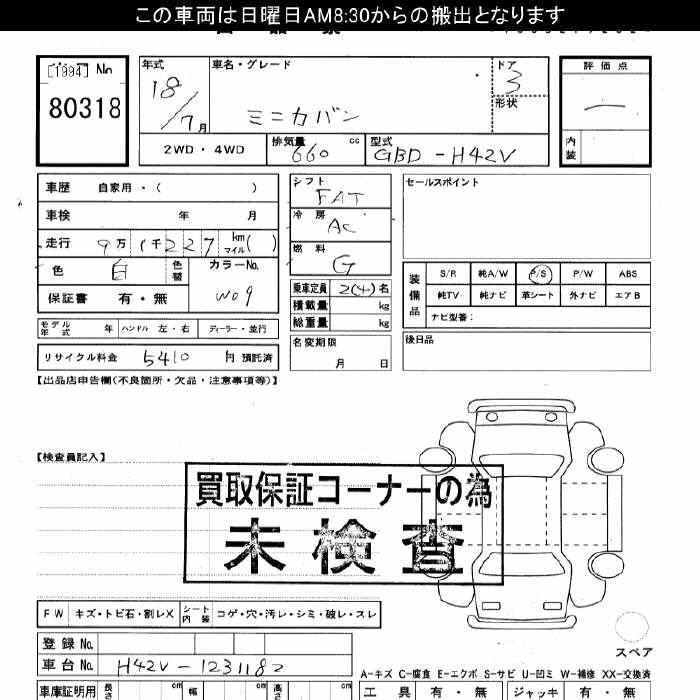 この車両は日曜日AM8:30からの搬出となります
[1994] No
80318
年式 18/7月
車名・グレード ミニカバン
ドア 3
形状
評価点
内装
2WD・4WD
排気量 660 cc
型式 GBD-H42V
車歴 自家用・( )
車検 年 月
走行 9万1千227 km マイル( )
色 白 色替 カラーNo. W09
保証書 有・無
シフト FAT
冷房 AC
燃料 G
乗車定員 2(4)名
積載量 kg
総重量 kg
名変期限 月 日
セールスポイント
装備品
S/R 純A/W P/S P/W ABS
純TV 純ナビ 革シート 外ナビ エアB
ナビ型番:
後日品
モデル年式 年 ハンドル 左・右 ディーラー・並行
リサイクル料金 5410 円 預託済
【出品店申告欄(不良箇所・欠品・注意事項等)】
【検査員記入】
買取保証コーナーの為
未検査
FW キズ・トビ石・割レX シート内装 コゲ・穴・汚レ・シミ・破レ・スレ
登録No.
車台No. H42V-1231182
スペア
A-キズ C-腐食 E-エクボ S-サビ U-凹ミ W-補修 XX-交換済
車庫証明用 長さ cm 幅 cm 高さ cm
工具 有・無 ジャッキ 有・無